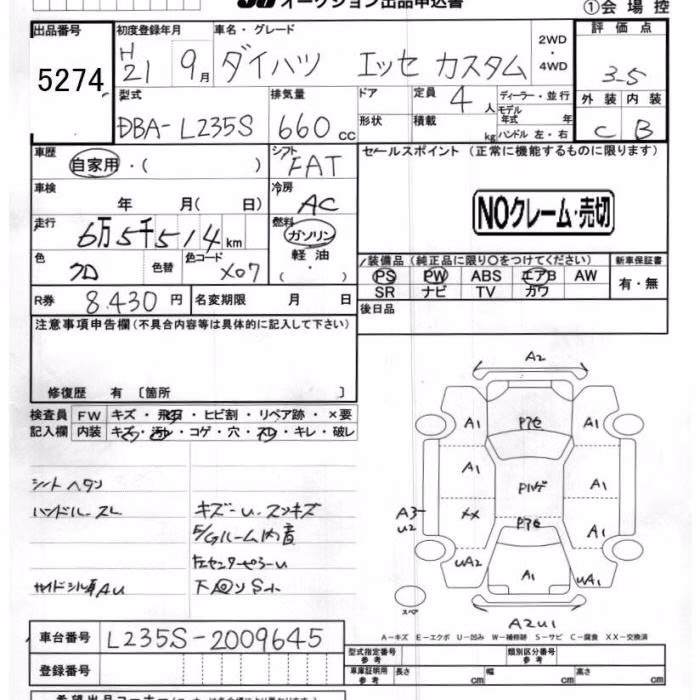 オークション出品申込書
①会場控
出品番号
5274
初度登録年月
H21 9月
車名・グレード
ダイハツ エッセ カスタム
2WD・4WD
評価点
3-5
型式
DBA-L235S
排気量
660cc
ドア
形状
定員
4人
積載
kg
ディーラー・並行
モデル年式 年
ハンドル 左・右
外装 内装
C B
車歴
自家用・( )
シフト
FAT
セールスポイント(正常に機能するものに限ります)
NOクレーム・売切
車検
年 月( 日)
冷房
AC
走行
6万5千514km
燃料
ガソリン
軽油
・
( )
色
クロ
色替
色コード
X07
装備品(純正品に限り○をつけてください)
PS PW ABS エアB AW
SR ナビ TV カワ
新車保証書
有・無
R券 8.430円
名変期限 月 日
後日品
注意事項申告欄(不具合内容等は具体的に記入して下さい)
修復歴 有〔箇所 〕
検査員記入欄
FW キズ・飛石・ヒビ割・リペア跡・×要
内装 キズ・汚レ・コゲ・穴・スレ・キレ・破レ
シートヘタリ
ハンドルスレ
キズ-u.スンキズ
A2
A1
A1
A1
A1
A3
U2
XX
A1
UA2
A1
UA1
スペア
A2U1
A-キズ E-エクボ U-凹み W-補修跡 S-サビ C-腐食 XX-交換済
車台番号
L235S-2009645
登録番号
型式指定番号 参考
類別区分番号 参考
車庫証明用 参考
長さ cm
幅 cm
高さ cm